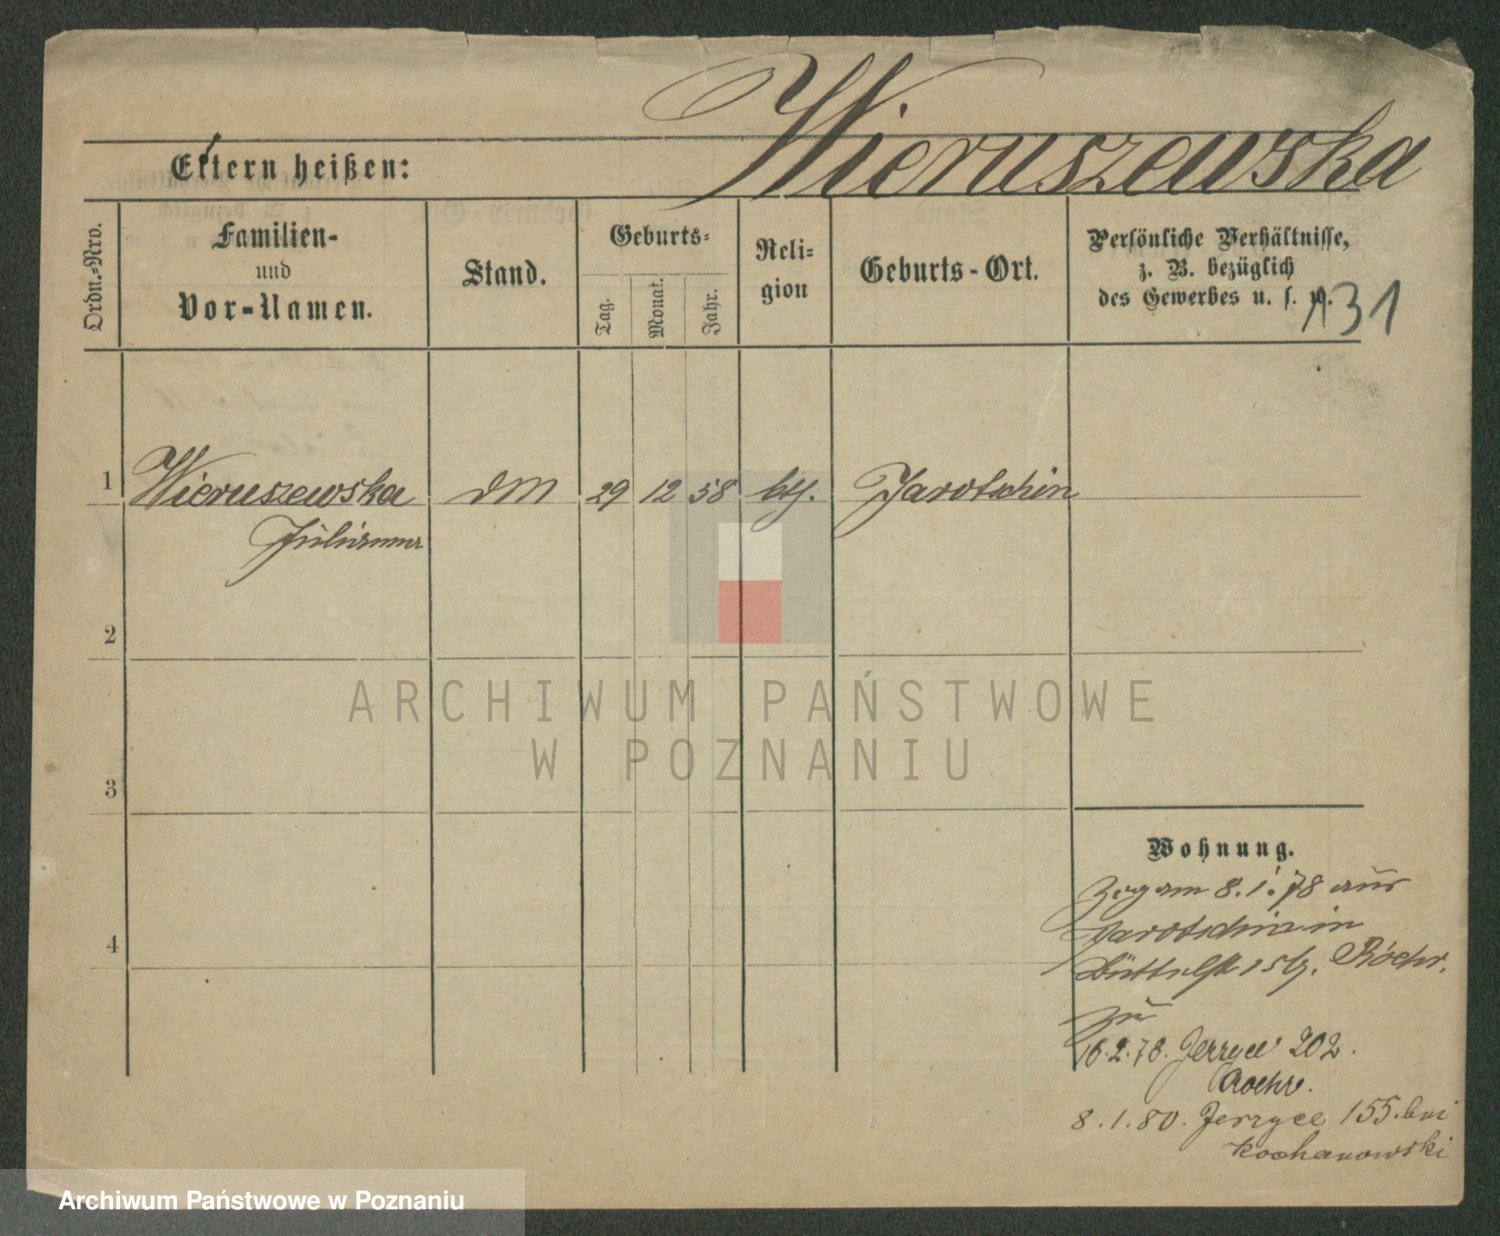 Wieruszewska
Eltern heißen:
Ordn.-Nro.
Familien-
und
Vor-Namen.
Stand.
Geburts-
Tag.
Monat.
Jahr.
Reli-
gion
Geburts-Ort.
Persönliche Verhältnisse,
z. B. bezüglich
des Gewerbes u. s. w.
131
1 Wieruszewska DM 29 12 58 kth. Jarotschin
Julianna
2
ARCHIWUM PAŃSTWOWE
W POZNANIU
3
Wohnung.
Zog am 8.1.78 aus
Jarotschin in
15 Roehr.
4
zu
16.2.78. Jerzyce 202.
Roehr.
8.1.80. Jerzyce 155. bei
Kochanowski
Archiwum Państwowe w Poznaniu